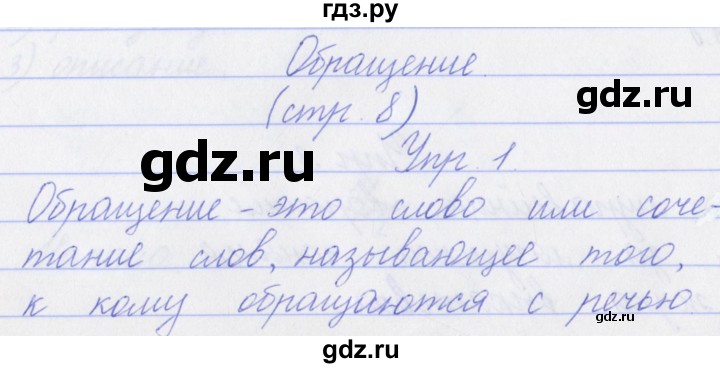 гдз.ру
3) описание
Обращение.
(стр. 8)
gdz.ru
gdz.ru
Упр. 1.
Обращение – это слово или соче-
тание слов, называющее того,
к кому обращаются с речью.
gdz.ru
gdz.ru